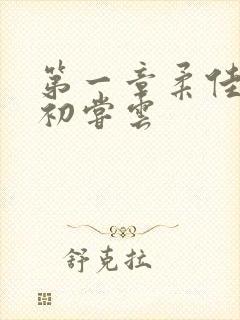 第一章柔佳
初嘗雲
舒克拉